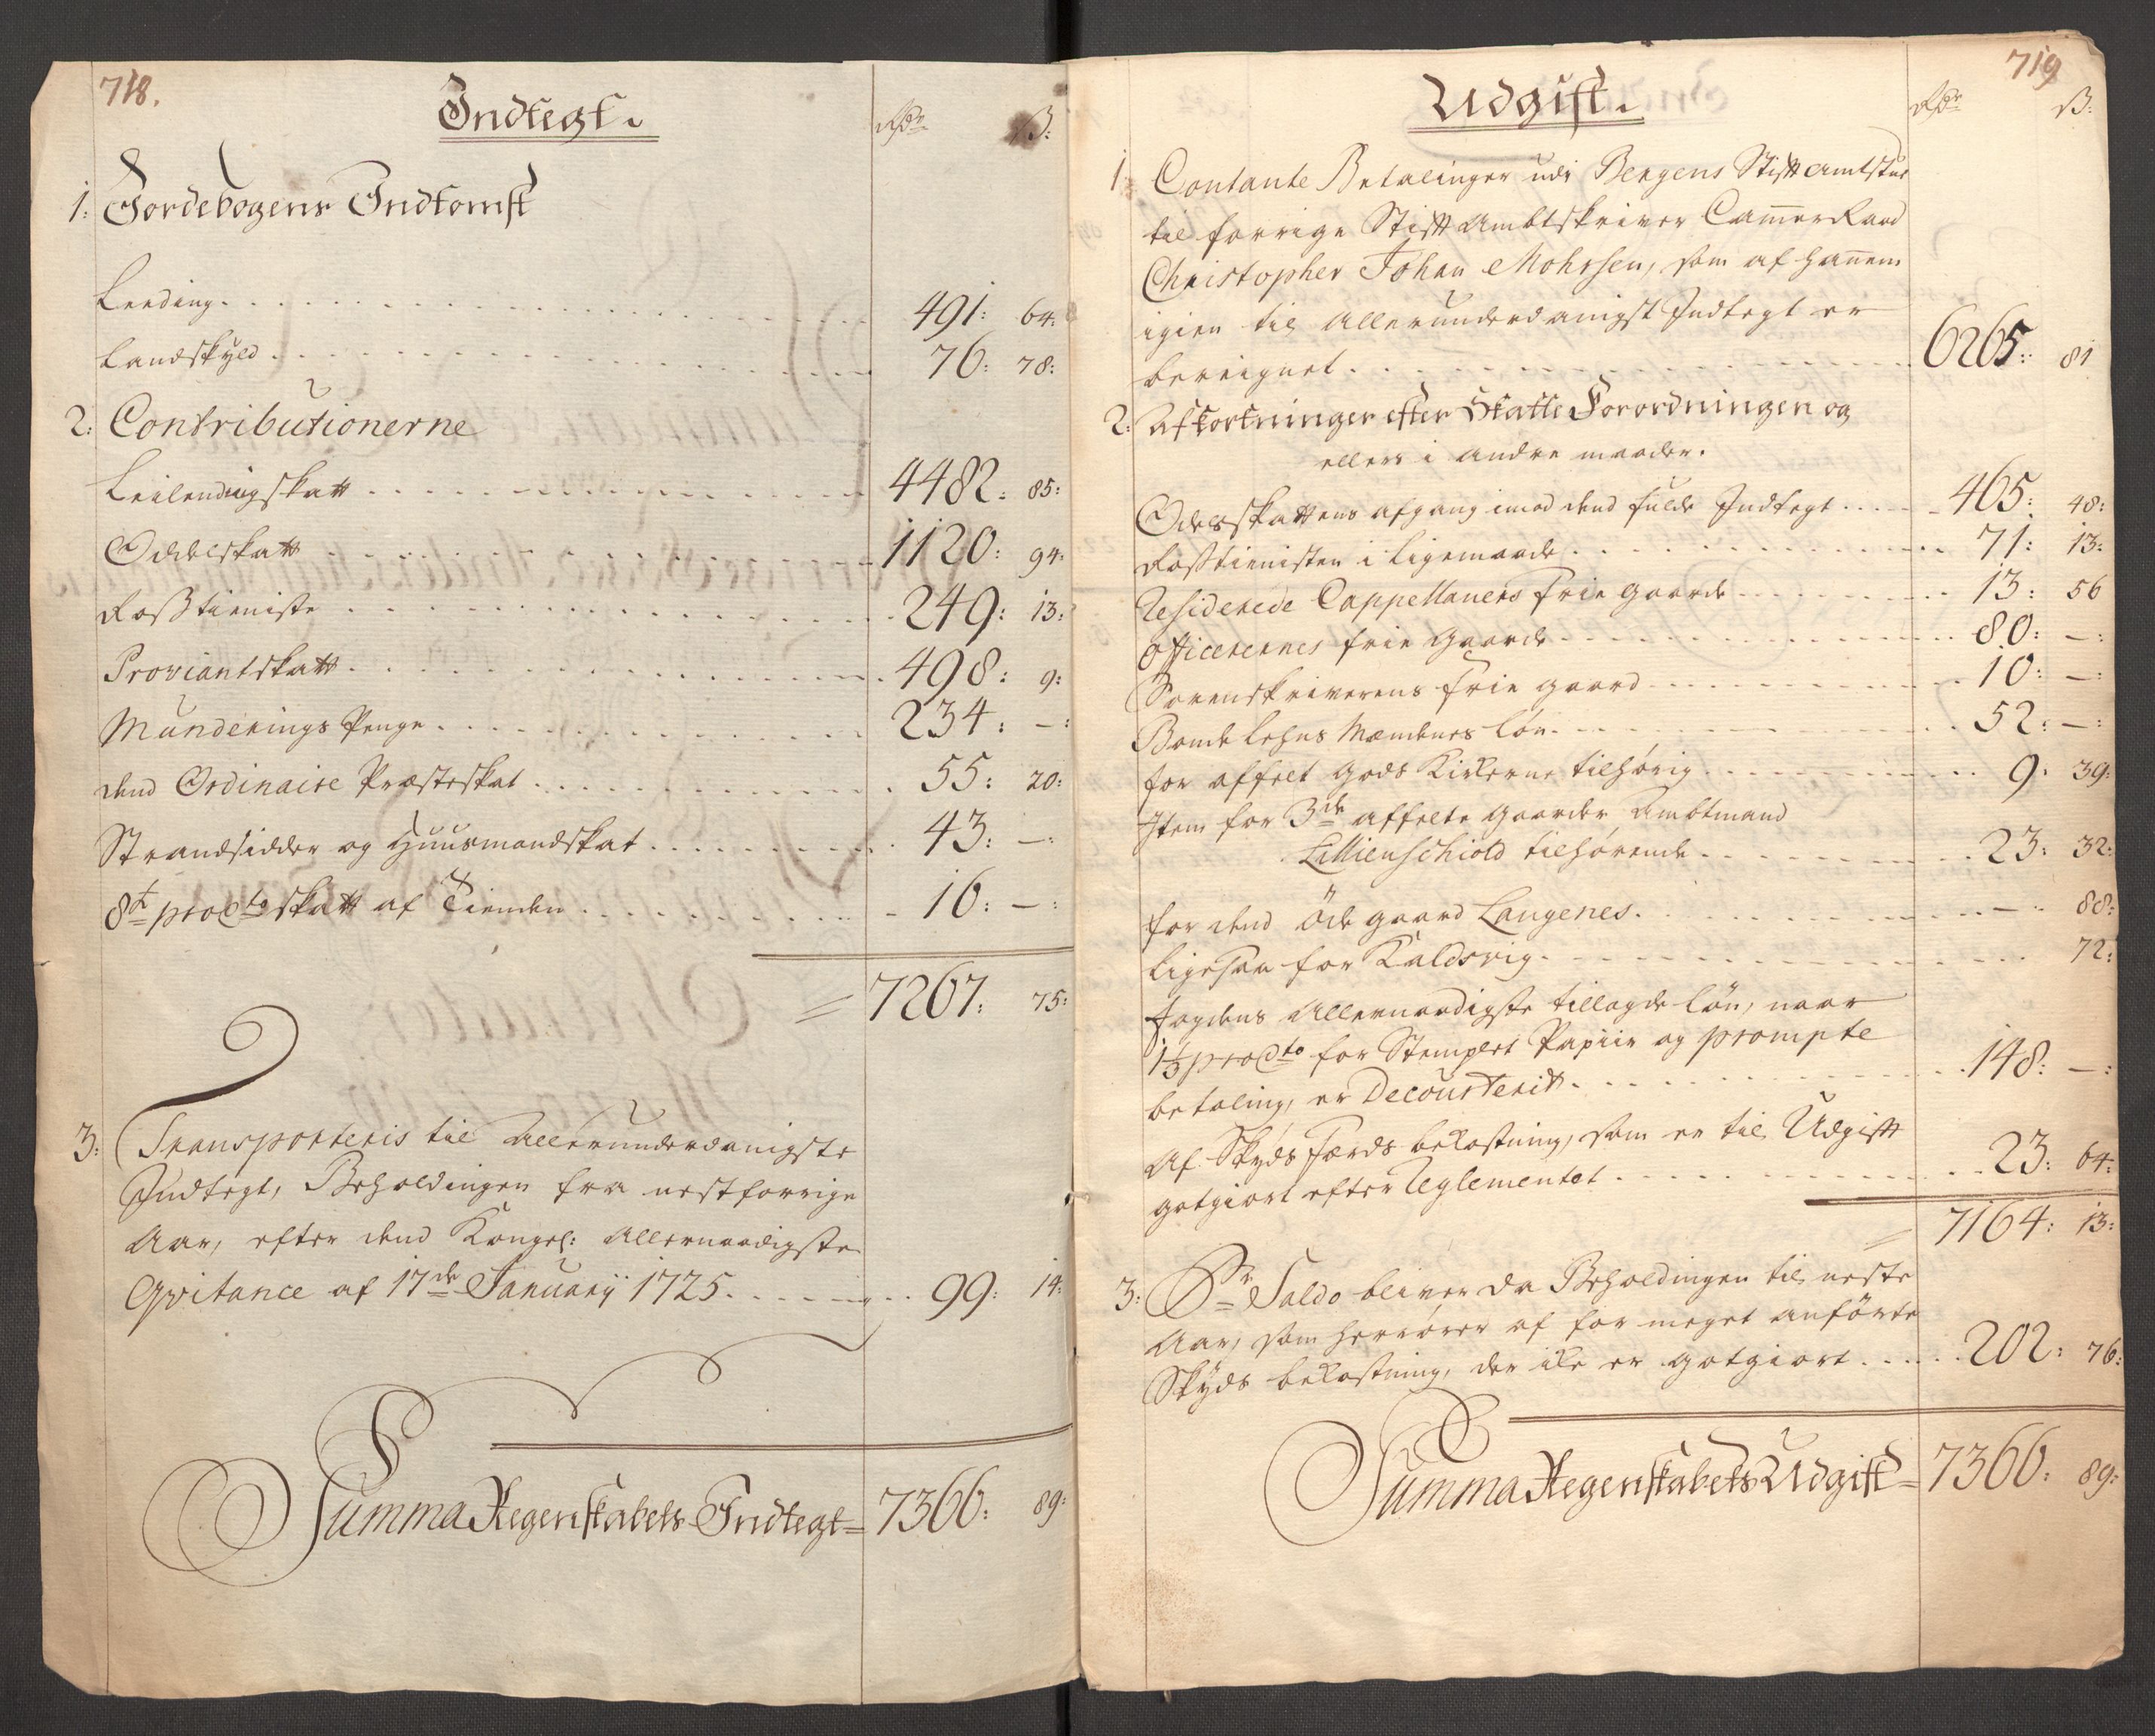 718.
Indtegt.
Rdr ß:
1: Jordebogens Indkomst
Leeding 491: 64:
Landskyld 76: 78:
2: Contributionerne
Leilendingskatt 4482: 85:
Oddelskatt 1120: 94:
Rosstieniste 249: 13:
Proviantskatt 498: 9:
Munderings Penge 234: –:
dend Ordinaire Præsteskat 55: 20:
Strandsidder og Huusmandskat 43: –:
8t pro Cto skatt af Tienden 16: –:
= 7267: 75:
3: Transporteris til Allerunderdanigste
Indtegt, Beholdingen fra nestforrige
Aar, efter dend Kongel: Allernaadigste
Qvitance af 17de Januarij 1725 99: 14:
Summa Regenskabets Indtegt = 7366: 89:
719
Udgift.
Rdr ß:
1: Contante Betalinger udi Bergens Stiftamtstue
til forrige Stift Ambtskriver CammerRaad
Christopher Johan Mohrsen, som af hannem
igien til Allerunderdanigst Indtegt er
bereignet 6265: 81
2: Afkortninger efter Skatte Forordningen og
ellers i andre maader.
Odelsskattens afgang imod dend fulde Indtegt 465: 48:
Rosstienisten i ligemaade 71: 13:
Residerede Cappellaners frie gaarde 13: 56
Officerernes frie Gaarde 80: –:
Sorenskriverens frie gaard 10: –:
Bonde Lehns Mændenes løn 52: –:
for affelt Gods Kirkerne tilhørig 9: 39:
Item for 3de affelte gaarder Ambtmand
Lillienschiold tilhørende 23: 32:
for dend öde gaard Langenes –: 88:
ligesaa for Kaldsvig 72:
fogdens Allernaadigste tillagde løn, naar
1½ pro Cto for Stemplet Papiir og prompte
betaling, er Decourterit 148: –:
Af Skyds Færds bekostning, som er til Udgift
gotgiort efter Reglementet 23: 64:
= 7164: 13:
3: Pr Saldo bliver da Beholdingen til neste
Aar, som herrører af for meget anførte
Skyds bekostning, der ike er gotgiort 202: 76:
Summa Regenskabets Udgift = 7366: 89: